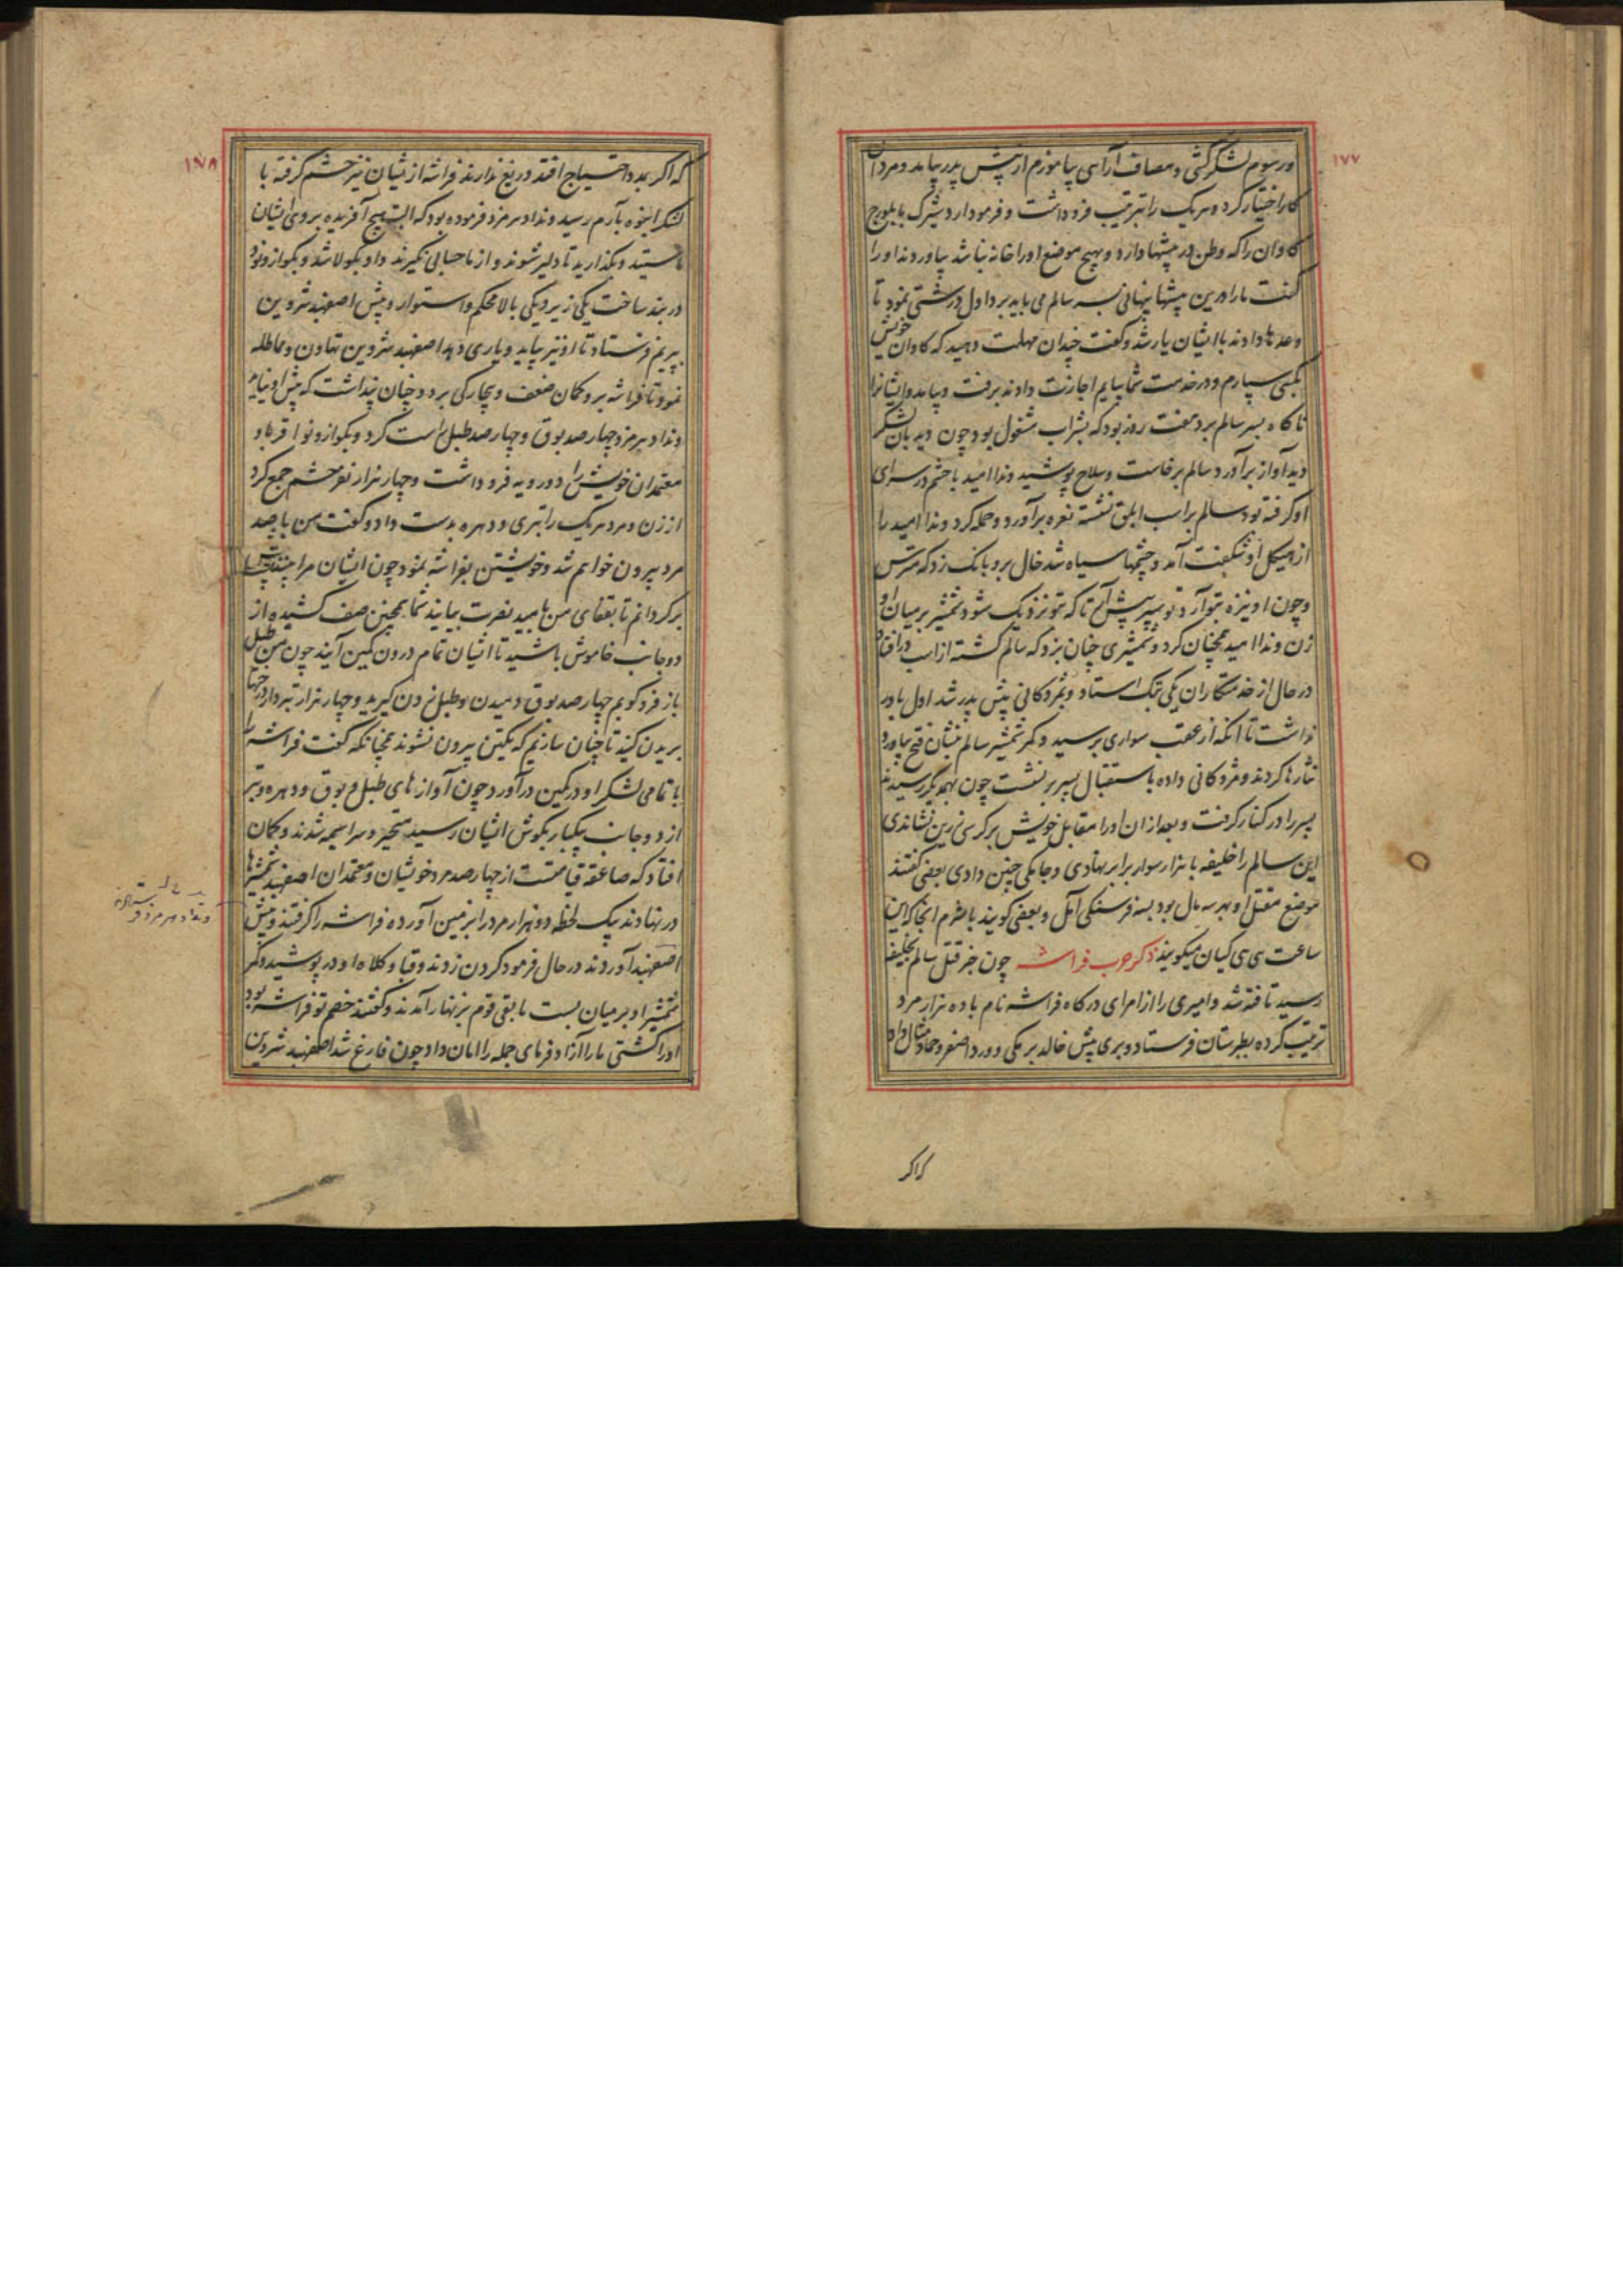 ۱۷۷
ورسوم لشکر کشی و مصاف آرای بیاموزم از پیش پدر بیامد و مردان
کار اختیار کرد و هر یک را بترتیب فرو داشت و فرمود
کاوان را که وطن در بیشها دارد و بهیچ موضع اورا خانه نباشد بیاوردند اورا
گفت مارا درین بیشها پنهانی بسر سالم می باید برد اول درشتی نمود تا
وعدها دادند با ایشان یار شد و گفت چندان مهلت دهید که کاوان خویش
بکسی سپارم و در خدمت شما بیایم اجازت دادند برفت و بیامد و ایشانرا
ناگاه بسر سالم برد هفت روز بود که بشراب مشغول بود چون دیدبان لشکر
دید آواز برآورد سالم برخاست و سلاح پوشید ونداامید با حشم در سرای
او گرفته بود سالم بر اسب ابلق نشسته نعره برآورد و حمله کرد ونداامید را
از هیکل او شگفت آمد و چشمها سیاه شد خال برو بانک زد که مترس
و چون او نیزه بتو آرد تو سپر پیش آر تا که بتو نزدیک شود شمشیر بر میان او
زن ونداامید همچنان کرد و شمشیری چنان بزد که سالم کشته از اسب در افتاد
در حال از خدمتکاران یکی بتک استاد و بمژدکانی پیش پدر شد اول باور
نداشت تا آنکه از عقب سواری برسید و کمر شمشیر سالم بنشان فتح بیاورد
نثارها کردند و مژدکانی داده باستقبال پسر برنشست چون بهمدیگر رسیدند
پسر را در کنار گرفت و بعد از ان اورا مقابل خویش بر کرسی زرین نشاندی
این سالم را خلیفه با هزار سوار برابر نهادی و جامگی چنین دادی بعضی گفتند
موضع مقتل او بهرسه مال بود بسه فرسنگی آمل و بعضی گویند آنجا که این
ساعت سی سی کیان میگویند ذکر حرب فراشه چون خبر قتل سالم بخلیفه
رسید تافته شد و امیری را از امرای درگاه فراشه نام با ده هزار مرد
ترتیب کرده بطبرستان فرستاد و بری پیش خالد برمکی و ورداصغر و حماد مثال داد
که اگر
۱۷۸
که اگر بمدد احتیاج افتد دریغ ندارند فراشه از ایشان نیز حشم گرفته با
لشکر انبوه بآرم رسید ونداد هرمزد فرموده بود که البته هیچ آفریده بروی ایشان
نایستید و بگذارید تا دلیر شوند و از ما حسابی نگیرند و او بکولا شد و بکوازونو
دربند ساخت یکی زیر و یکی بالا محکم و استوار و پیش اصفهبد شروین
بپریم فرستاد تا او نیز بیاید و یاری دهد اصفهبد شروین تهاون و مماطله
نمود تا فراشه برو گمان ضعف و بیچارگی برد و چنان پنداشت که پیش او نیاید
ونداد هرمزد چهار صد بوق و چهار صد طبل راست کرد و بکوازونو اقربا و
معتمدان خویش را دو رویه فرو داشت و چهار هزار نفر حشم جمع کرد
از زن و مرد هر یک را تبری و دهره بدست داد و گفت من با صد
مرد بیرون خواهم شد و خویشتن بفراشه نمود چون ایشان مرا بینند پشت
برگردانم تا بقفای من بامید نصرت بیایند شما همچنین صف کشیده از
دو جانب خاموش باشید تا ایشان تمام درون کمین آیند چون من طبل
باز فرو کوبم چهار صد بوق دمیدن و طبل زدن گیرید و چهار هزار تبر دار درختها
بریدن گیند تا چنان سازیم که یکتن بیرون نشوند همچنانکه گفت فراشه را
با تمامی لشکر او در کمین درآورد چون آوازهای طبل و بوق و دهره و تبر
از دو جانب بیکبار بگوش ایشان رسید متحیر و سراسیمه شدند و گمان
افتاد که صاعقه قیامتست از چهار صد مرد خویشان و معتمدان اصفهبد شمشیرها
در نهادند بیک لحظه دو هزار مرد را بزمین آورده فراشه را گرفتند و پیش
اصفهبد آوردند در حال فرمود گردن زدند و قبا و کلاه او در پوشید و کمر
شمشیر او بر میان بست مابقی قوم بزنهار آمدند و گفتند خصم تو فراشه بود
اورا کشتی مارا آزاد فرمای جمله را امان داد چون فارغ شد اصفهبد شروین
ونداد هرمزد